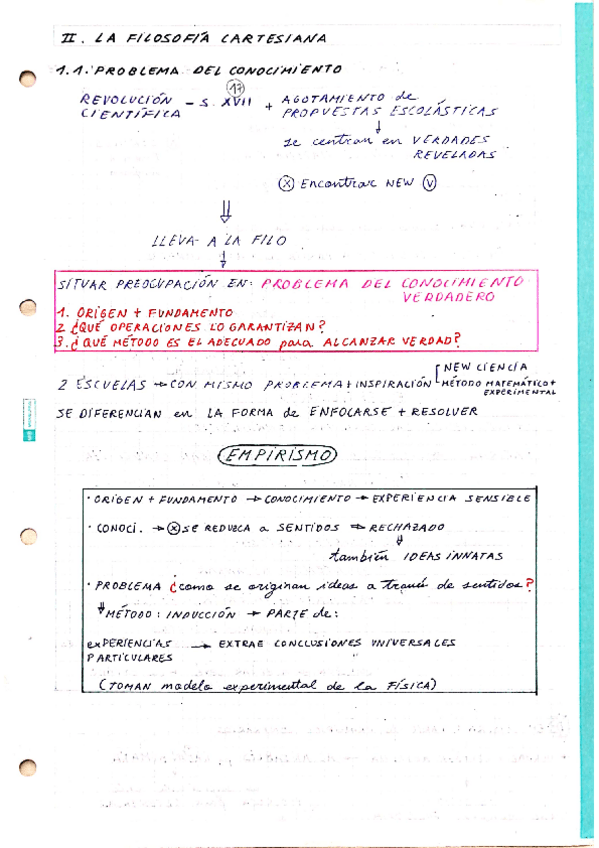 II. LA FILOSOFÍA CARTESIANA
1.1. PROBLEMA DEL CONOCIMIENTO
17
REVOLUCIÓN - S. XVII + AGOTAMIENTO de
CIENTÍFICA PROPUESTAS ESCOLÁSTICAS
↓
se centran en VERDADES
REVELADAS
Ⓧ Encontrar NEW Ⓥ
⇓
LLEVA A LA FILO
↓
SITUAR PREOCUPACIÓN EN: PROBLEMA DEL CONOCIMIENTO
VERDADERO
1. ORIGEN + FUNDAMENTO
2 ¿QUÉ OPERACIONES LO GARANTIZAN?
3. ¿QUÉ MÉTODO ES EL ADECUADO para ALCANZAR VERDAD?
NEW CIENCIA
2 ESCUELAS → CON MISMO PROBLEMA + INSPIRACIÓN MÉTODO MATEMÁTICO +
EXPERIMENTAL
SE DIFERENCIAN en LA FORMA de ENFOCARSE + RESOLVER
EMPIRISMO
· ORIGEN + FUNDAMENTO → CONOCIMIENTO → EXPERIENCIA SENSIBLE
· CONOCI. → Ⓧ SE REDUZCA a SENTIDOS ⇒ RECHAZADO
⇓
también IDEAS INNATAS
· PROBLEMA ¿como se originan ideas a través de sentidos?
⇓ MÉTODO: INDUCCIÓN → PARTE de:
exPERIENCIAS → EXTRAE CONCLUSIONES UNIVERSALES
PARTICULARES
(TOMAN modelo experimental de la FÍSICA)